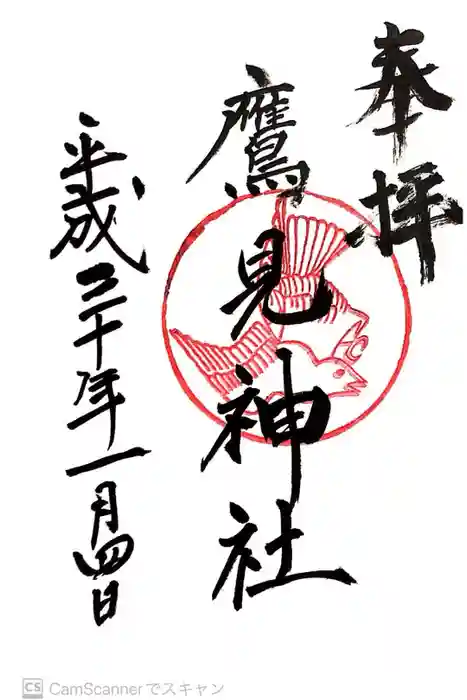 奉拝
鷹見神社
平成三十年一月四日
CS CamScannerでスキャン